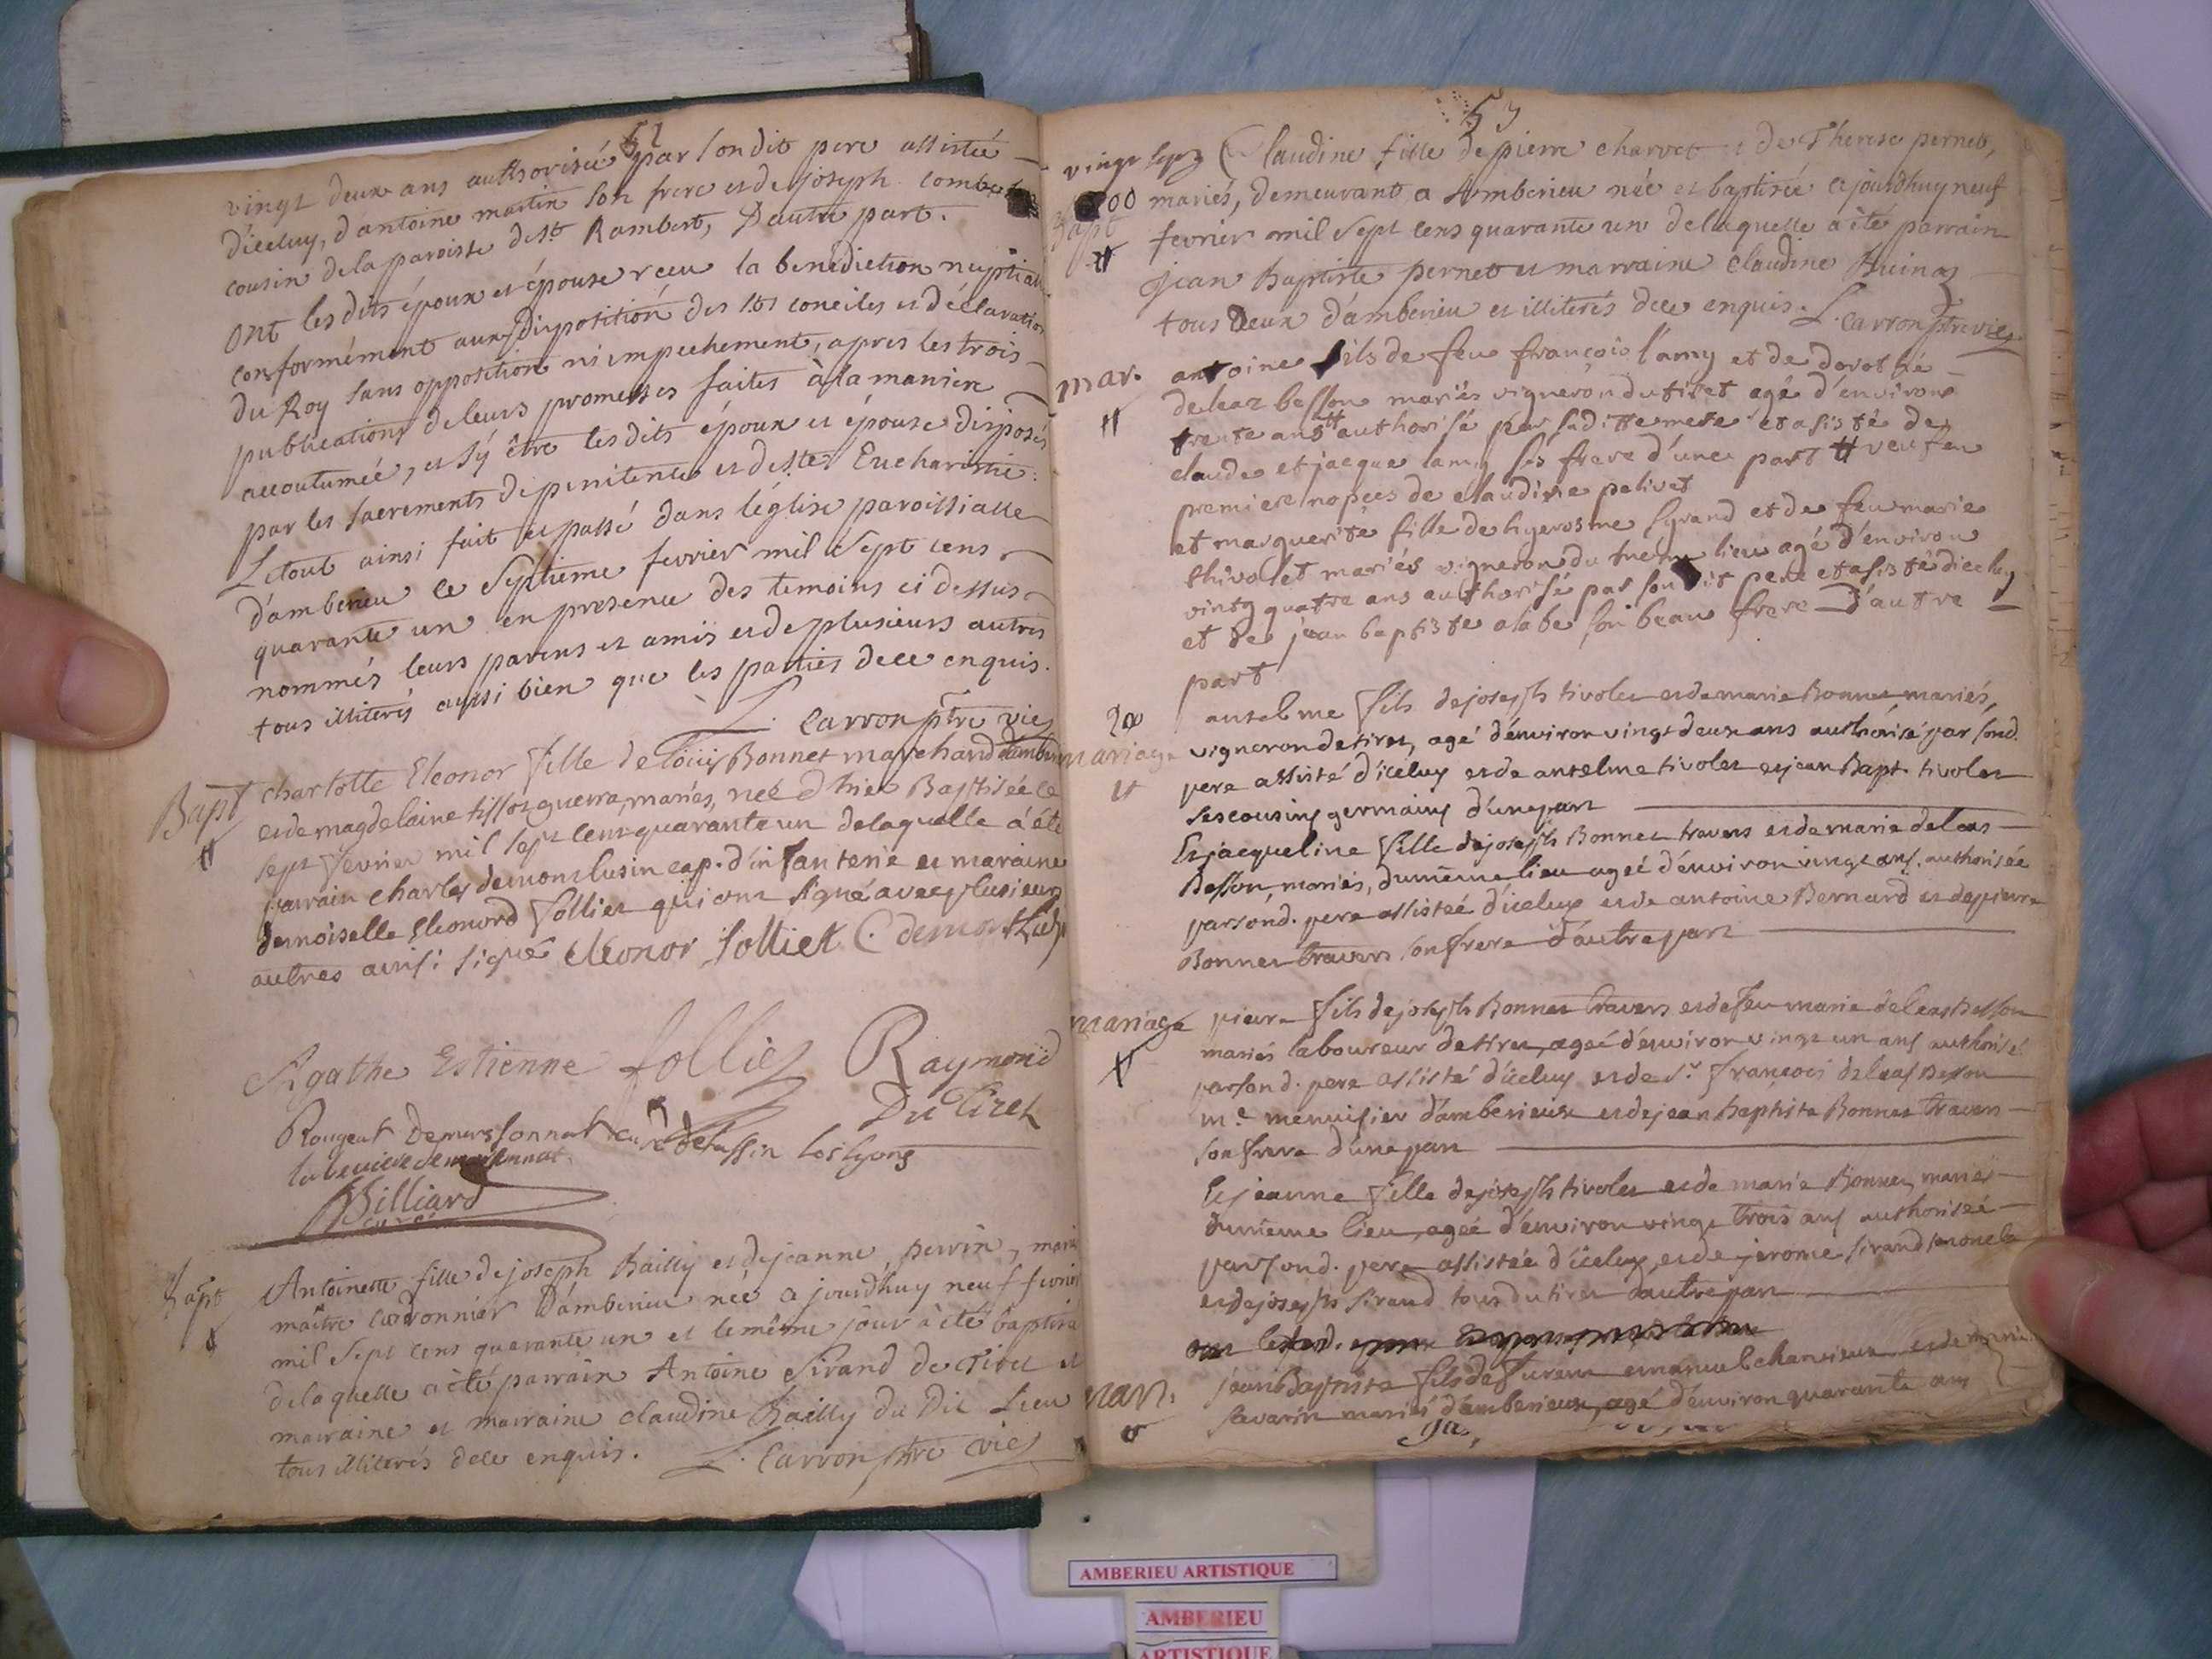 52
vingt deux ans authorisée par son dit pere assistée
d'iceluy, d'antoine martin son frere et de joseph
cousin de la paroisse de st. Rambert, D'autre part.
ont les dits époux et épouse receu la benediction nuptiale
conformément aux disposition des sts conciles et déclaration
du Roy sans opposition ni empechement, apres les trois
publications de leurs promesses faites à la maniere
accoutumée, et s'y être les dits époux et épouse disposés
par les sacrements de penitence et de ste Eucharistie.
Le tout ainsi fait et passé dans l'église paroissialle
d'amberieu ce septieme fevrier mil sept cens
quarante un en presence des temoins ci dessus
nommés leurs parens et amis et de plusieurs autres
tous illiterés aussi bien que les parties de ce enquis.
L. Carron ptre vic
Bapt
charlotte Eleonor fille de loüis Bonnet marchand
et de magdelaine tissot guerra, mariés, née d'hier Baptisée le
sept fevrier mil sept cent quarante un de laquelle a été
parrain charles de monslusin cap. d'infanterie et maraine
demoiselle Eleonord follier qui ont signé avec plusieurs
autres ainsi signé eleonor folliet C
Agathe Estienne follier Raymond
Du Tiret
Rougeat
Billiard
curé
Bapt
Antoinette fille de joseph Bailly et de jeanne perrin, mariés
maître cordonnier d'amberieu née a jourd'huy neuf fevrier
mil sept cens quarante un et le même jour à été baptisée
de laquelle a été parrain Antoine Sirand de Tiret et
marraine et marraine claudine Bailly du Dit Lieu
tous illiterés de ce enquis. L. Carron ptre vic
53
vingt sept
Bapt
Claudine fille de pierre charvet et de Therese pernet,
mariés, demeurant a Amberieu née et baptisée ce jourd'huy neuf
fevrier mil sept cens quarante un de laquelle a été parrain
jean Baptiste pernet et marraine claudine
tous deux d'amberieu et illiterés de ce enquis. L. Carron ptre vic
mar.
antoine fils de feu françois lamy et de dorothé
deleaz besson mariés vigneron du tiret agé d'environ
trente ans # authorisé par sa ditte mere et asisté de
claude et jacque lamy ses frere d'une part # veuf en
premiere nopces de claudine pelivet
et marguerite fille de hyerosme syrand et de feu marie
thivolet mariés vigneron du meme lieu agé d'environ
vinty quatre ans authorisé par son dit pere et asisté d'iceluy
et de jean baptiste alabe son beau frere d'autre
part
200
mariage
anselme fils de joseph tivolet et de marie Bonnet mariés,
vigneron de tiret, agé d'environ vingt deux ans authorisé par sond.
pere assisté d'iceluy et de anselme tivolet et jean Bapt. tivolet
ses cousins germains d'une part
Et jacqueline fille de joseph Bonnet travers et de marie deleas
Besson, mariés, du meme lieu ageé d'environ vingt ans. authorisée
par sond. pere assistée d'iceluy et de antoine Bernard et de pierre
Bonnet travers son frere d'autre part
mariage
pierre fils de joseph Bonnet travers et de feu marie deleas Besson
mariés laboureur de tiret, ageé d'environ vingt un ans authorisé
par sond. pere assisté d'iceluy et de sr. françois deleas Besson
me. menuisier d'amberieux et de jean baptiste Bonnet travers
son frere d'une part
Et jeanne fille de joseph tivolet et de marie Bonnet, mariés
du meme lieu, ageé d'environ vingt trois ans authorisée
par sond. pere assistée d'iceluy, et de jerome sirand
et de joseph sirand tous du tiret d'autre part
mar.
jean Baptiste fils de furent emanuel chanrieux et de
savarin mariés d'amberieux, agé d'environ quarante ans
AMBERIEU ARTISTIQUE
AMBERIEU
ARTISTIQUE